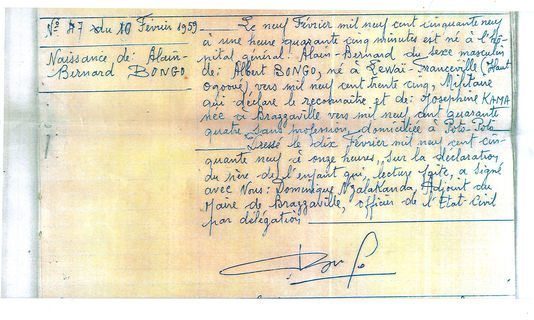 N° 47 du 10 Février 1959
Naissance de: Alain-
Bernard BONGO
Le neuf Février mil neuf cent cinquante neuf
à une heure quarante cinq minutes est né à l'Hô-
pital général: Alain-Bernard du sexe masculin
de: Albert BONGO, né à Lewaï-Franceville (Haut
Ogooué) vers mil neuf cent trente cinq, Militaire
qui déclare le reconnaître et de: Joséphine KAMA
née à Brazzaville vers mil neuf cent quarante
quatre sans profession, domiciliée à Poto-Poto
Dressé le dix Février mil neuf cent cin-
quante neuf à onze heures, sur la déclaration
du père de l'enfant qui, lecture faite, a signé
avec Nous: Dominique N'Zalakanda, Adjoint du
Maire de Brazzaville, officier de l'Etat-Civil
par délégation